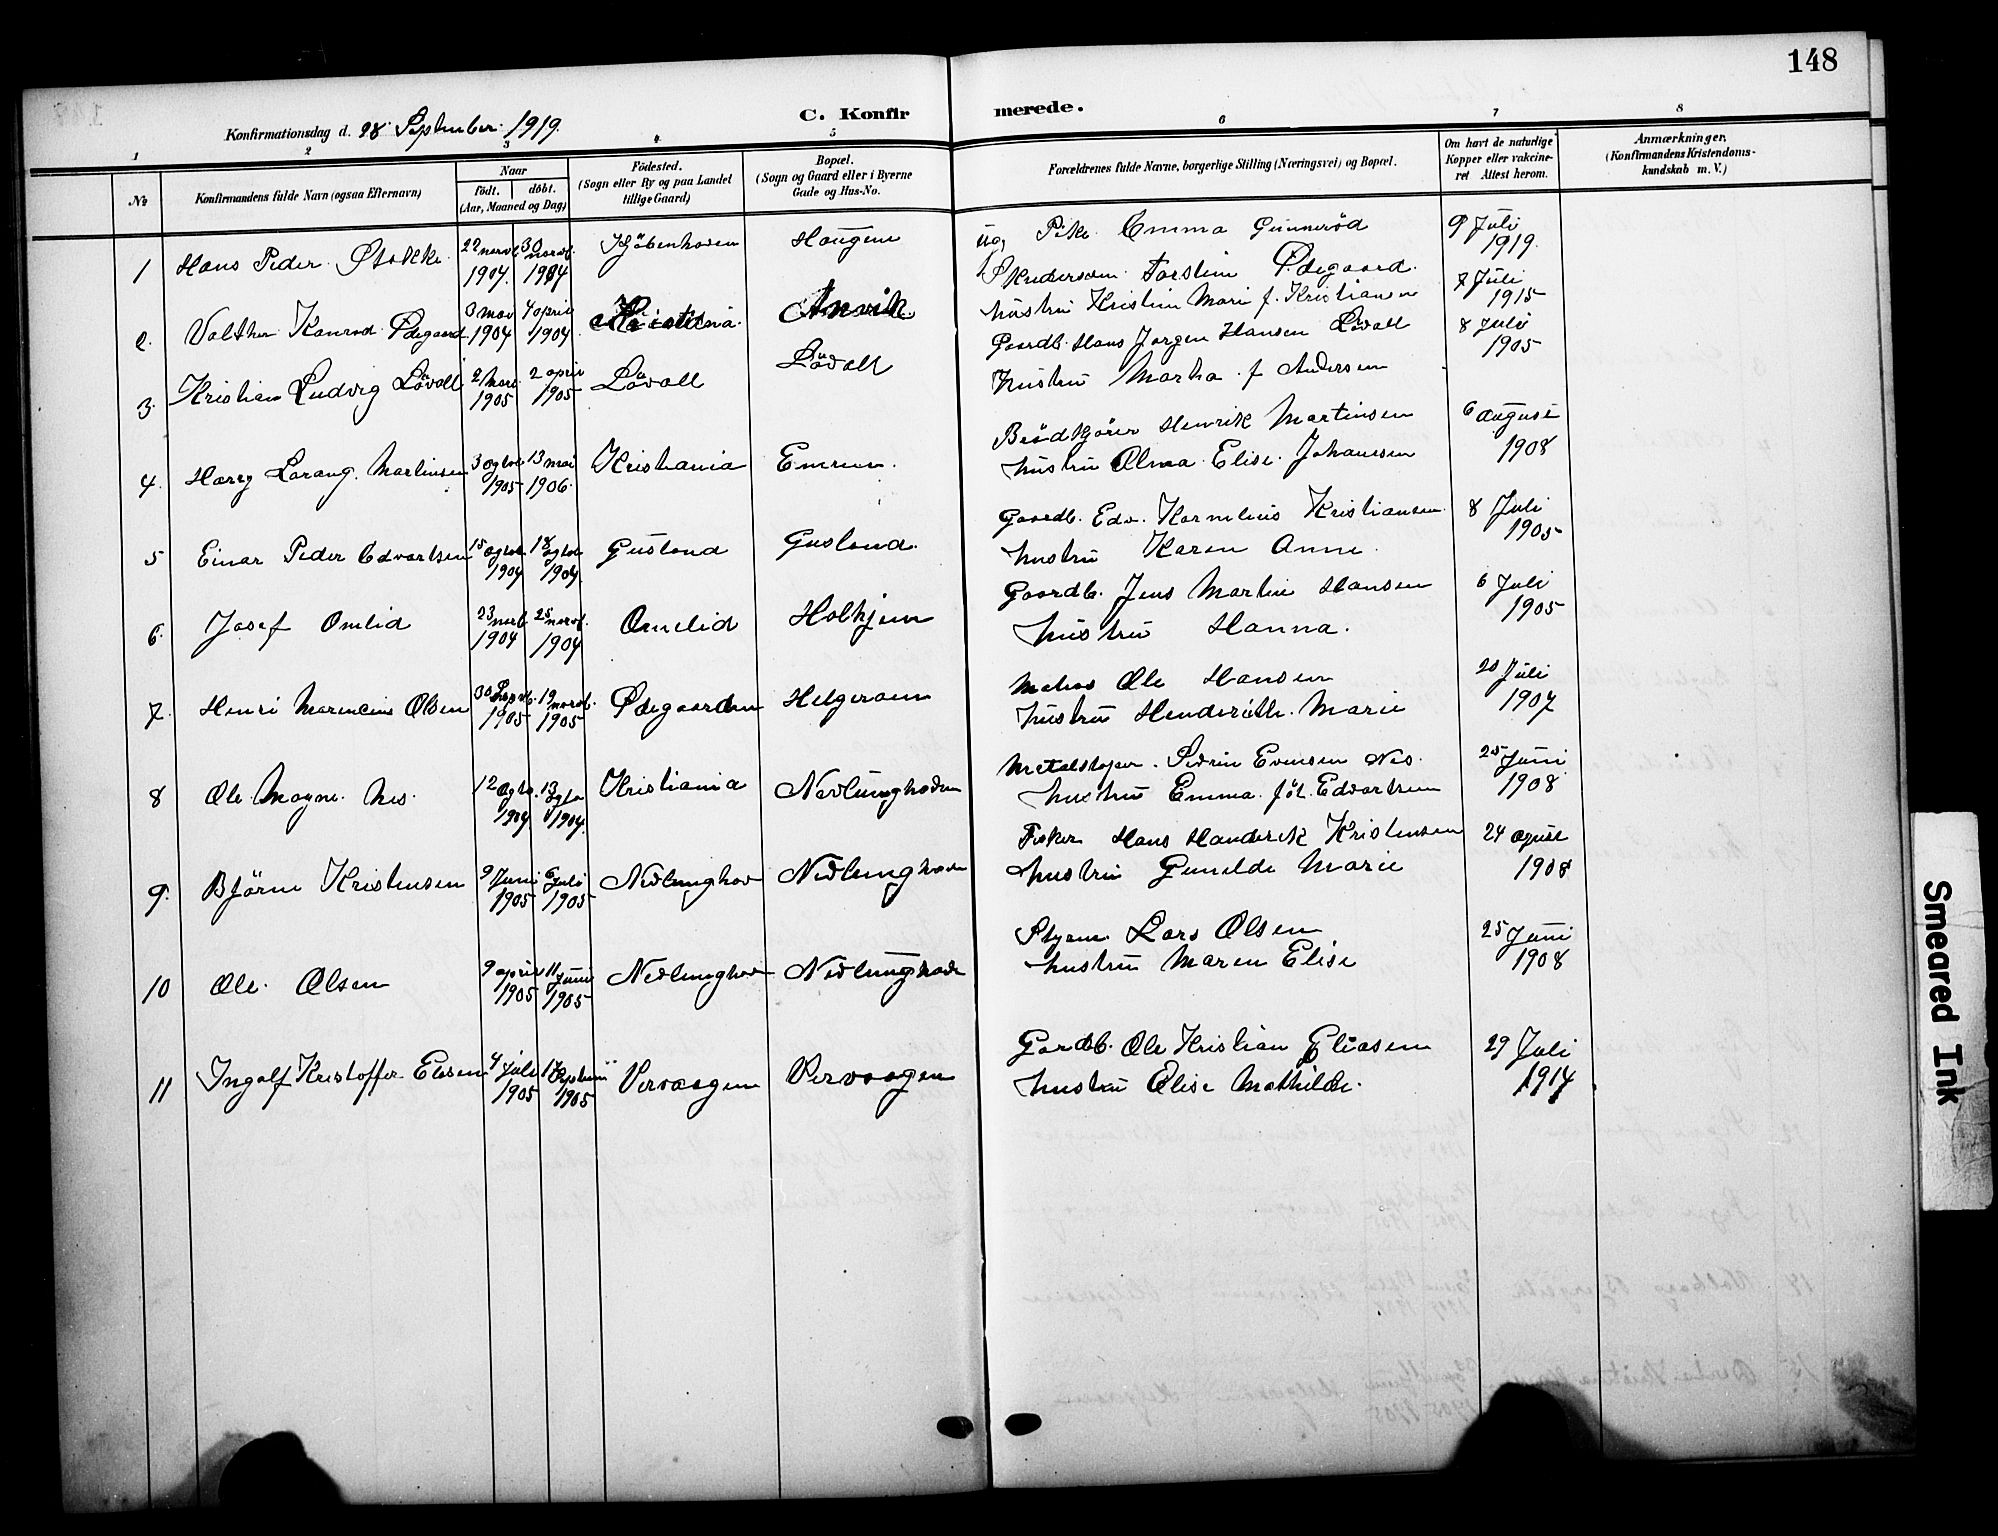 148
C. Konfirmerede.
Konfirmationsdag d. 28 September 1919.
1 2 3 4 5 6 7 8
No
Konfirmandens fulde Navn (ogsaa Efternavn)
Naar
födt. döbt.
(Aar, Maaned og Dag)
Födested.
(Sogn eller By og paa Landet
tillige Gaard)
Bopæl.
(Sogn og Gaard eller i Byerne
Gade og Hus-No.
Forældrenes fulde Navne, borgerlige Stilling (Næringsvei) og Bopæl.
Om havt de naturlige
Kopper eller vakcine-
ret Attest herom.
Anmærkninger.
(Konfirmandens Kristendoms-
kundskab m. V.)
1 Hans Peder Stokke 22 novb 1904. 30 novb. 1904 Kjöbenhaven Haugene ug. Pike Emma Gunnerød 9 Juli 1919.
2. Valther Konrad Ødegaard 3 1904 4 april 1904 Kristiania Anvik Torstein Ødegaard. 7 Juli 1915
hustru Kristine Mari f. Kristiansen
3. Kristian Ludvig Lövall 2 1905 2 april 1905 Lövall Lövall Gaardb. Hans Jörgen Hansen Lövall 8 Juli 1905
hustru Martha f Andersen
4. Harry Lorang. Martinsen 3 ogtob 1905 13 mai 1906. Kristiania Brödkjörer Henrik Martinsen 6 august 1908
hustru Alma Elise. Johansen
5 Einar Peder Edvartsen 15 ogtob 1904 18 ogtob 1904. Gusland Gusland. Gaardb. Edv. Kornelius Kristiansen 8 Juli 1905
hustru Karen Anne.
6. Josef Omlid 23 novb. 1904 25 novb. 1904 Omelid Holtjem Gaardb. Jens Martin Hansen 6 Juli 1905
hustru Hanna.
7. Henri Marencius Olsen 30 Septb. 1905 19 novb. 1905 Ødegaarden Helgeraen Matros Ole Hansen 20 Juli 1907
hustru Marie
8 Ole Magne Nes. 12 Ogto. 1904 13 Ogto 1904. Kristiania Nevlunghaven Evensen Nes. 25 Juni 1908
hustru Emma föt. Edvartsen
9. Björne Kristensen 9 Juni 1905 6 Juli 1905 Nevlunghav Nevlunghaven Fisker Hans Handerik Kristensen 24 april 1908
hustru Gunelde Marie
10 Ole Olsen 9 april 1905 11 Juni 1905 Nevlunghav Nevlunghavn Styrm. Lars Olsen 25 Juni 1908
hustru Maren Elise
11 Ingolf Kristoffer 4 Juli 1905 1905 Vervaagen Vervaagen Gardb. Ole Kristian Eliasen 29 Juli 1914
hustru Elise Mathilde.
Smeared Ink